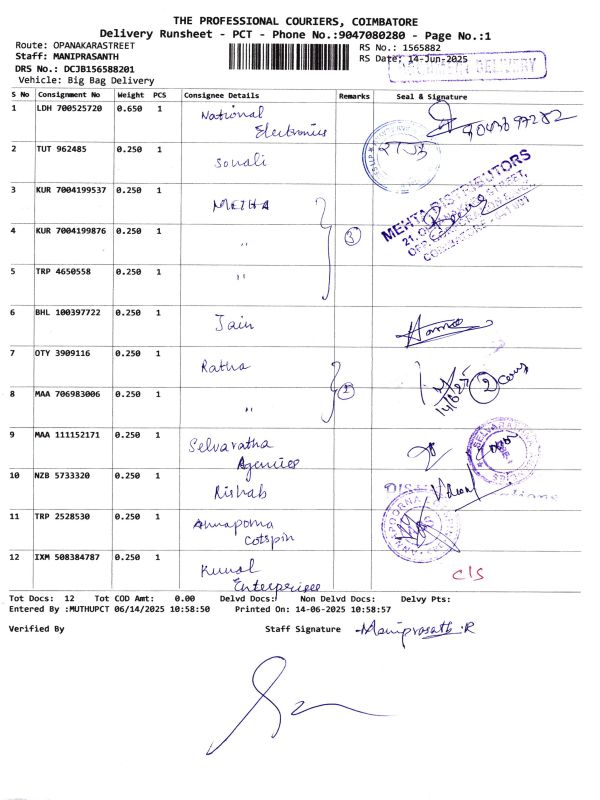 THE PROFESSIONAL COURIERS, COIMBATORE
Delivery Runsheet - PCT - Phone No.:9047080280 - Page No.:1
Route: OPANAKARASTREET
RS No.: 1565882
Staff: MANIPRASANTH
RS Date: 14-Jun-2025
DRS No.: DCJB156588201
DELIVERY
Vehicle: Big Bag Delivery
S No Consignment No Weight PCS Consignee Details Remarks Seal & Signature
1 LDH 700525720 0.650 1 National Electronics
2 TUT 962485 0.250 1 Sonali
3 KUR 7004199537 0.250 1 METHA
MEHTA DISTRIBUTORS
4 KUR 7004199876 0.250 1 " 3
5 TRP 4650558 1 0.250 "
6 BHL 100397722 0.250 1 Jain
7 OTY 3909116 0.250 1 Ratha
8 MAA 706983006 0.250 1 " 2 14/6/25 2 Cons
9 MAA 111152171 0.250 1 Selvaratha Agencies
10 NZB 5733320 0.250 1 Rishab
11 TRP 2528530 0.250 1 Annaporna Cotspin
12 IXM 508384787 0.250 1 Kunal Enterprisee C/S
Tot Docs: 12 Tot COD Amt: 0.00 Delvd Docs: Non Delvd Docs: Delvy Pts:
Entered By :MUTHUPCT 06/14/2025 10:58:50 Printed On: 14-06-2025 10:58:57
Verified By Staff Signature Maniprasath.R